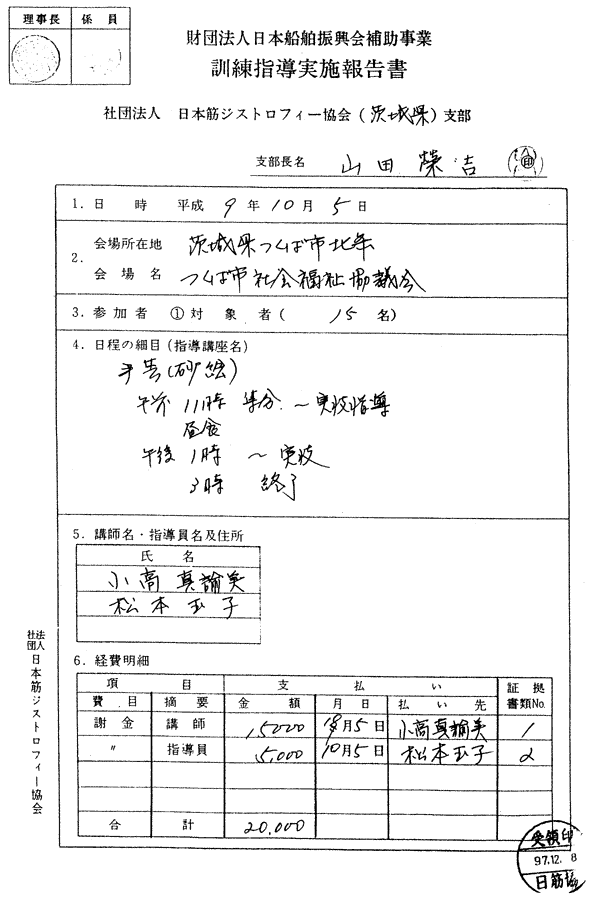 理事長 係員
財団法人日本船舶振興会補助事業
訓練指導実施報告書
社団法人 日本筋ジストロフィー協会(茨城県)支部
支部長名 山田榮吉
1. 日 時 平成 9年10月5日
2. 会場所在地 茨城県つくば市北条
会場名 つくば市社会福祉協議会
3. 参加者 ①対象者( 15名)
4. 日程の細目(指導講座名)
手芸(砂絵)
午前 11時 集合 ~実技指導
昼食
午後 1時 ~実技
3時 終了
5. 講師名・指導員名及住所
氏名
小高真諭美
松本玉子
6. 経費明細
項目 支払い 証拠書類No.
費目 摘要 金額 月日 払い先
謝金 講師 15000 10月5日 小高真諭美 1
〃 指導員 5,000 10月5日 松本玉子 2
合計 20,000
社団法人 日本筋ジストロフィー協会
受領印
97.12. 8
日筋協